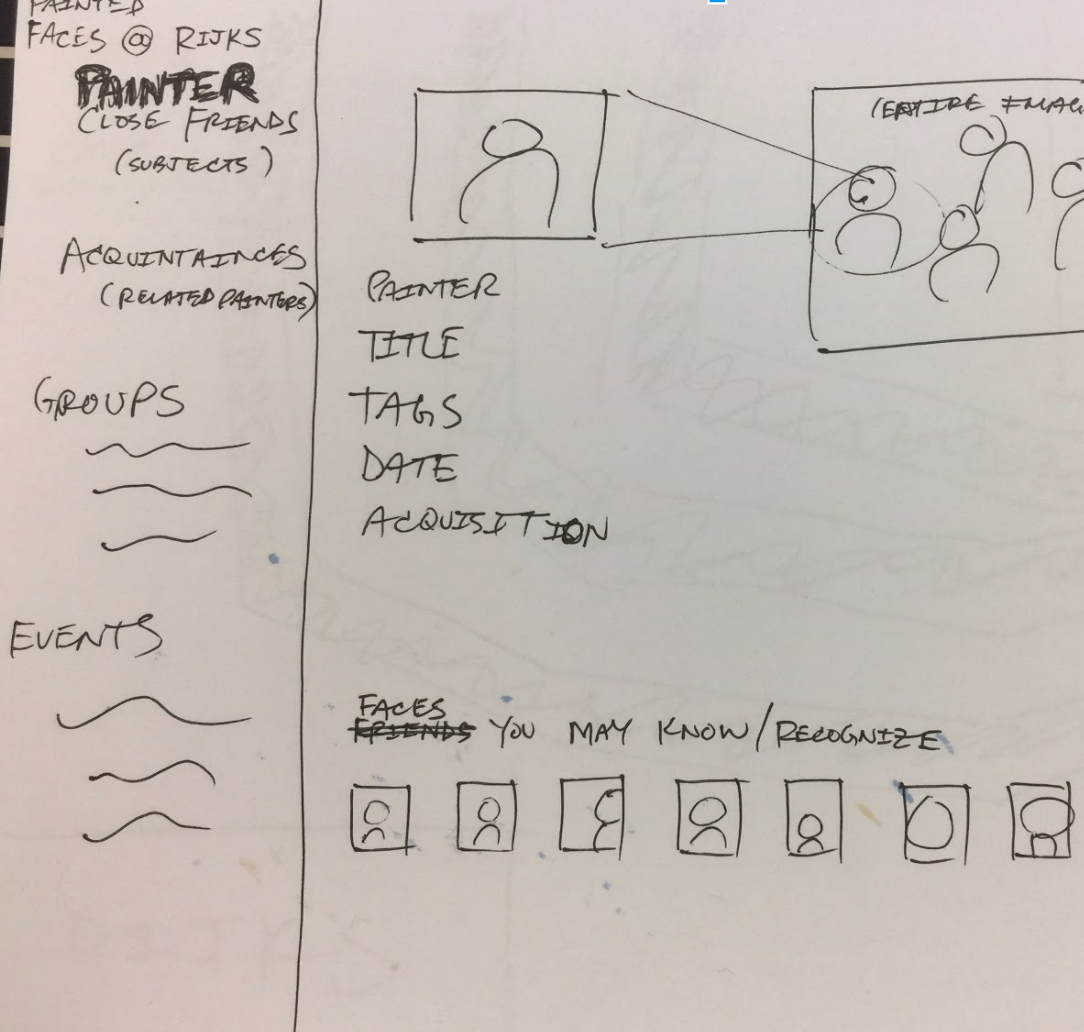 PAINTED
FACES @ RIJKS
PAINTER
CLOSE FRIENDS
(SUBJECTS)
ACQUINTAINCES
(RELATED PAINTERS)
GROUPS
EVENTS
(ENTIRE IMAG
PAINTER
TITLE
TAGS
DATE
ACQUISITION
FACES
FRIENDS YOU MAY KNOW/RECOGNIZE